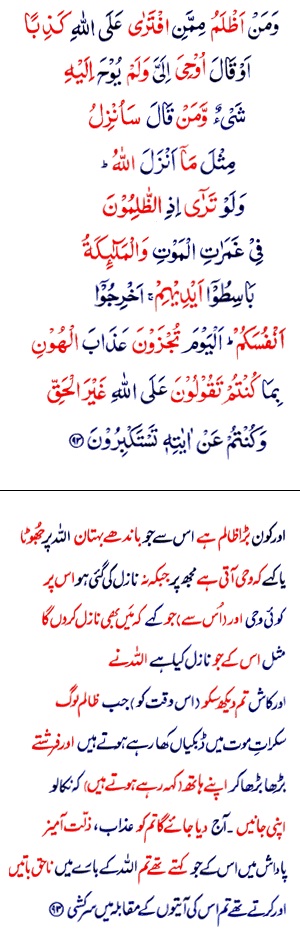 وَمَنْ اَظْلَمُ مِمَّنِ افْتَرٰى عَلَى اللّٰهِ كَذِبًا
اَوْ قَالَ اُوْحِىَ اِلَىَّ وَلَمْ يُوْحَ اِلَيْهِ
شَىْءٌ وَّمَنْ قَالَ سَاُنْزِلُ
مِثْلَ مَاۤ اَنْزَلَ اللّٰهُ ؕ
وَلَوْ تَرٰٓى اِذِ الظّٰلِمُوْنَ
فِىْ غَمَرٰتِ الْمَوْتِ وَالْمَلٰٓئِكَةُ
بَاسِطُوْۤا اَيْدِيْهِمْ ۚ اَخْرِجُوْۤا
اَنْفُسَكُمْ ؕ اَلْيَوْمَ تُجْزَوْنَ عَذَابَ الْهُوْنِ
بِمَا كُنْتُمْ تَقُوْلُوْنَ عَلَى اللّٰهِ غَيْرَ الْحَقِّ
وَكُنْتُمْ عَنْ اٰيٰتِهٖ تَسْتَكْبِرُوْنَ ﴿۹۳﴾
اور کون بڑا ظالم ہے اس سے جو باندھے بہتان اللہ پر جُھوٹا
یا کہے کہ وحی آتی ہے مجھ پر جبکہ نہ نازل کی گئی ہو اس پر
کوئی وحی اور (اُس سے) جو کہے کہ مَیں بھی نازل کر دوں گا
مثل اس کے جو نازل کیا ہے اللہ نے
اور کاش تم دیکھ سکو (اس وقت کو) جب ظالم لوگ
سکراتِ موت میں ڈبکیاں کھا رہے ہوتے ہیں اور فرشتے
بڑھا بڑھا کر اپنے ہاتھ (کہہ رہے ہوتے ہیں) کہ نکالو
اپنی جانیں ۔ آج دیا جائے گا تم کو عذاب، ذلّت آمیز
پاداش میں اس کے جو کہتے تھے تم اللہ کے بارے میں ناحق باتیں
اور کرتے تھے تم اس کی آیتوں کے مقابلہ میں سرکشی ﴿۹۳﴾